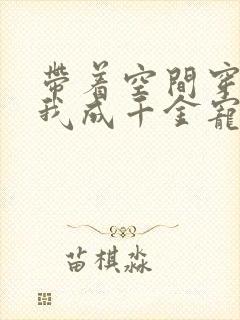 帶着空間穿
我成千金寵
苗棋淼